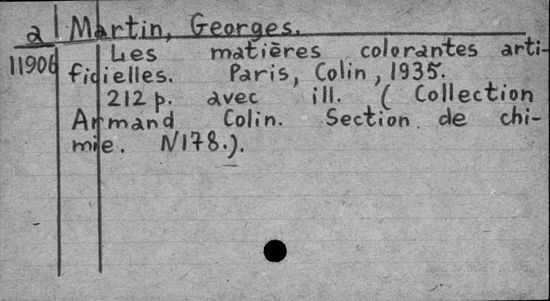 a Martin, Georges.
11906 Les matières colorantes arti-
ficielles. Paris, Colin, 1935.
212 p. avec ill. (Collection
Armand Colin. Section de chi-
mie. N178.).